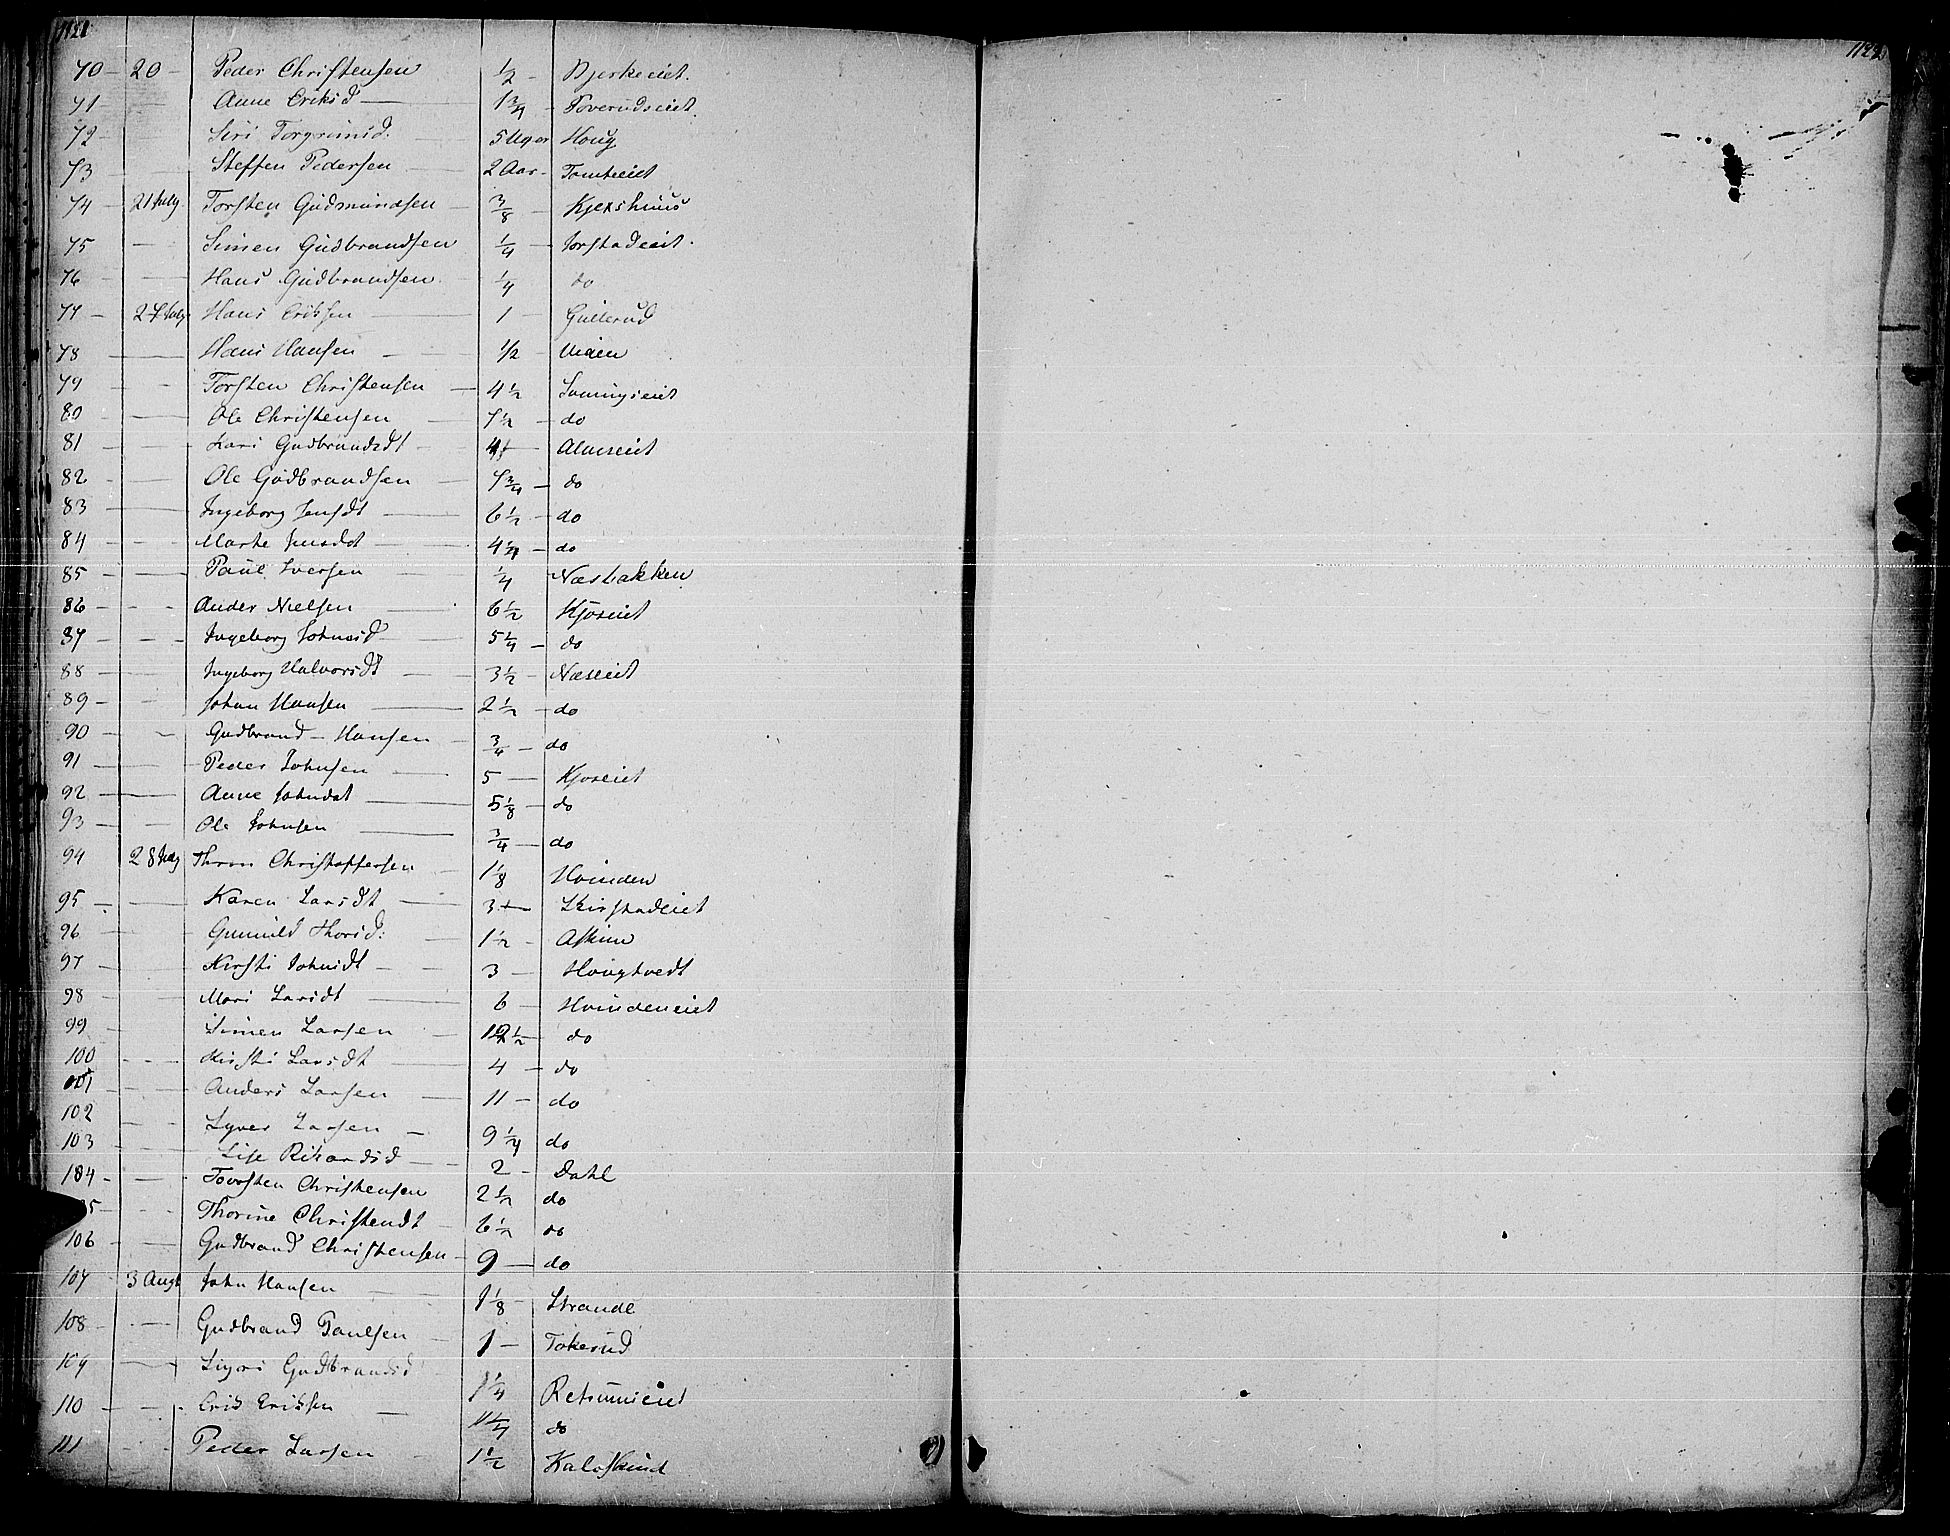 1121
1122
70 - 20 - Peder Christensen 1/2 - Bjerkeeiet.
71 - Anne Eriksd - 1 3/4 - Toverudseiet.
72 Siri Torgrimsd. 5 Uger Houg
73 Steffen Pedersen 2 Aar - Tomteeiet
74 - 21 July Torsten Gudmundsen - 3/8 - Kjexshuus
75 - Simen Gudbrandsen 1/4 - Jorstadeiet.
76 - Hans Gudbrandsen 1/4 do
77 - 27 July Hans Eriksen 1 - Gullerud
78 - Hans Hansen - 1/2 - Moen
79 - Torsten Christensen - 4 1/2
80 - Ole Christensen 7 1/2 - do
81 - Kari Gudbrandsdt - 4 - Almseiet
82 - Ole Gudbrandsen 7 3/4 - do
83 - Ingeborg Jensdt 6 1/2 - do
84 - Marte Jensdt 4 1/4 - do
85 - Paul Iversen 1/4 Næsbakken
86 - Ander Nielsen 6 1/2 - Kjoseiet
87 - Ingeborg Johnsd 5 1/4 - do
88 - Ingeborg Halvorsdt 3 1/2 - Næseiet
89 - Johan Hansen 2 1/2 - do
90 - Gudbrand - Hansen - 3/4 - do
91 - Peder Johnsen 5 - Kjoseiet
92 - Anne Johnsdt 5 1/8 - do
93 - Ole Johnsen 3/4 - do
94 28 July Thron Christoffersen 1 1/8 Hvinden
95 - Karen Larsdt 3 - Skirstadeiet
96 - Gunnild Thorsd: 1 1/2 - Askim
97 - Kirsti Johnsdt - 3 - Hougtvedt
98 - Mari Larsdt 6 - Hvindeneiet
99 - Simen Larsen 12 1/2 - do
100 - Kirsti Larsdt 4 - do
101 - Anders Larsen 11 - do
102 - Syver Larsen - 9 1/4 do
103 - Lise Rikardsd - 2 - Dahl
104 - Toorsten Christensen 2 1/2 do
105 - Thorine Christendt 6 1/2 - do
106 - Gudbrand Christensen - 9 - do
107 3 Augt John Hansen 1 1/8 - Strande
108 - Gudbrand Paulsen 1 - Tokerud
109 - Sigri Gudbrandsd 1 1/4 Retrumseiet
110 - Erik Eriksen - 11 1/4 do
111 Peder Larsen 1 1/2 - Kaloskind